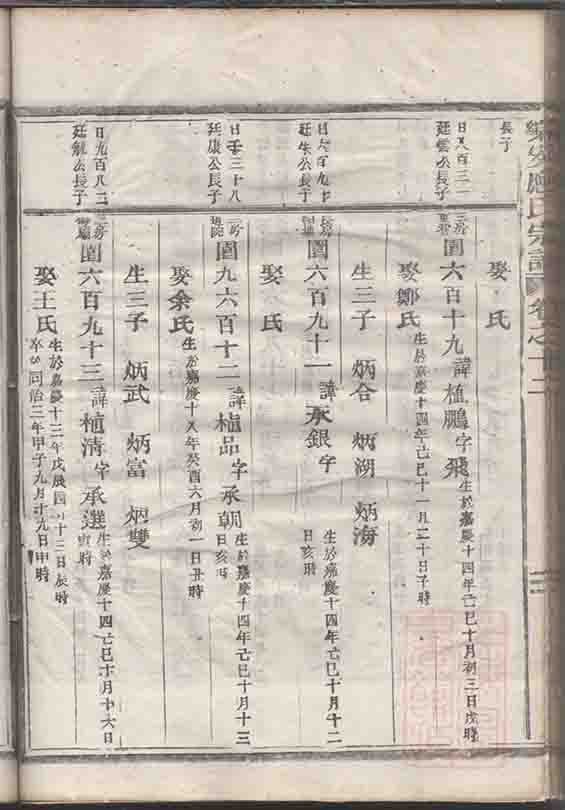 氏宗譜 卷之十二
長子
娶 氏
日 百三
廷雲公長子
圕六百十九 諱植鵬 字飛 生於嘉慶十四年己巳十月初三日戌時
娶鄭氏 生於嘉慶十四年己巳十一月二十日子時
生三子 炳合 炳湖 炳海
百九十
廷朱公長子
圕六百九十一 諱承銀 字 生於嘉慶十四年己巳十月十二
日亥時
娶 氏
日 三十八
廷康公長子
圕九六百十二 諱植品 字承朝 生於嘉慶十四年己巳十月十三
日亥時
娶余氏 生於嘉慶十八年癸酉六月初一日丑時
生三子 炳武 炳富 炳雙
日九百八二
廷 公長子
圕六百九十三 諱植清 字承選 生於嘉慶十四己巳十月十六日
寅時
娶王氏 生於嘉慶十三年戊辰四 十三日辰時
卒於同治三年甲子九月十九日申時